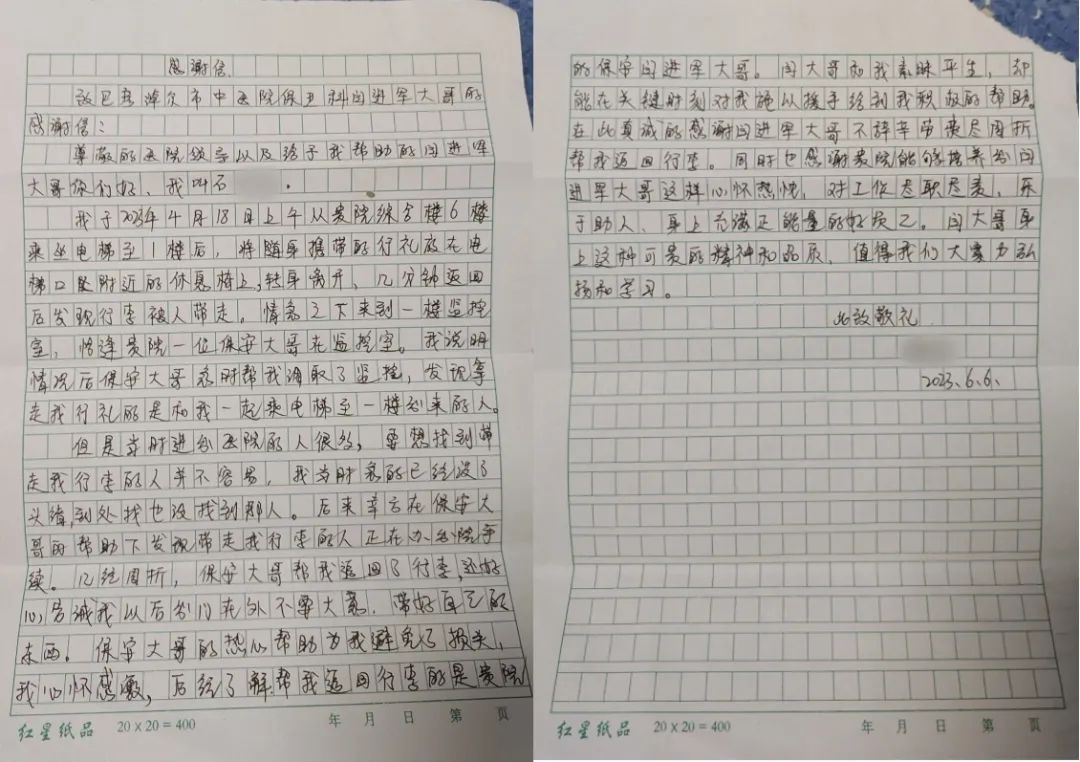 感谢信
致巴彦淖尔市中医院保卫科闫进军大哥的
感谢信：
尊敬的医院领导以及给予我帮助的闫进军
大哥你们好、我叫石
我于2023年4月18日上午从贵院综合楼6楼
乘坐电梯至1楼后，将随身携带的行礼放在电
梯口附近的休息椅上,转身离开，几分钟返回
后发现行李被人带走。情急之下来到一楼监控
室，恰逢贵院一位保安大哥在监控室。我说明
情况后保安大哥及时帮我调取了监控，发现拿
走我行礼的是和我一起乘电梯至一楼出来的人。
但是当时进出医院的人很多，要想找到带
走我行李的人并不容易，我当时急的已经没了
头绪,到处找也没找到那人。后来幸亏在保安大
哥的帮助下发现带走我行李的人正在办出院手
续。几经周折，保安大哥帮我追回了行李,还好
心告诫我以后出门在外不要大意、带好自己的
东西。保安大哥的热心帮助为我避免了损失，
我心怀感激，后经了解帮我追回行李的是贵院
的保安闫进军大哥。闫大哥和我素昧平生，却
能在关键时刻对我施以援手给到我积极的帮助。
在此真诚的感谢闫进军大哥不辞辛劳费尽周折
帮我追回行李。同时也感谢贵院能够培养出闫
进军大哥这样心怀热忱，对工作尽职尽责，乐
于助人、身上充满正能量的好员工。闫大哥身
上这种可贵的精神和品质，值得我们大家力弘
扬和学习。
此致敬礼
2023.6.6.
红星纸品 20×20=400 年 月 日 第 页
红星纸品 20×20=400 年 月 日 第 页